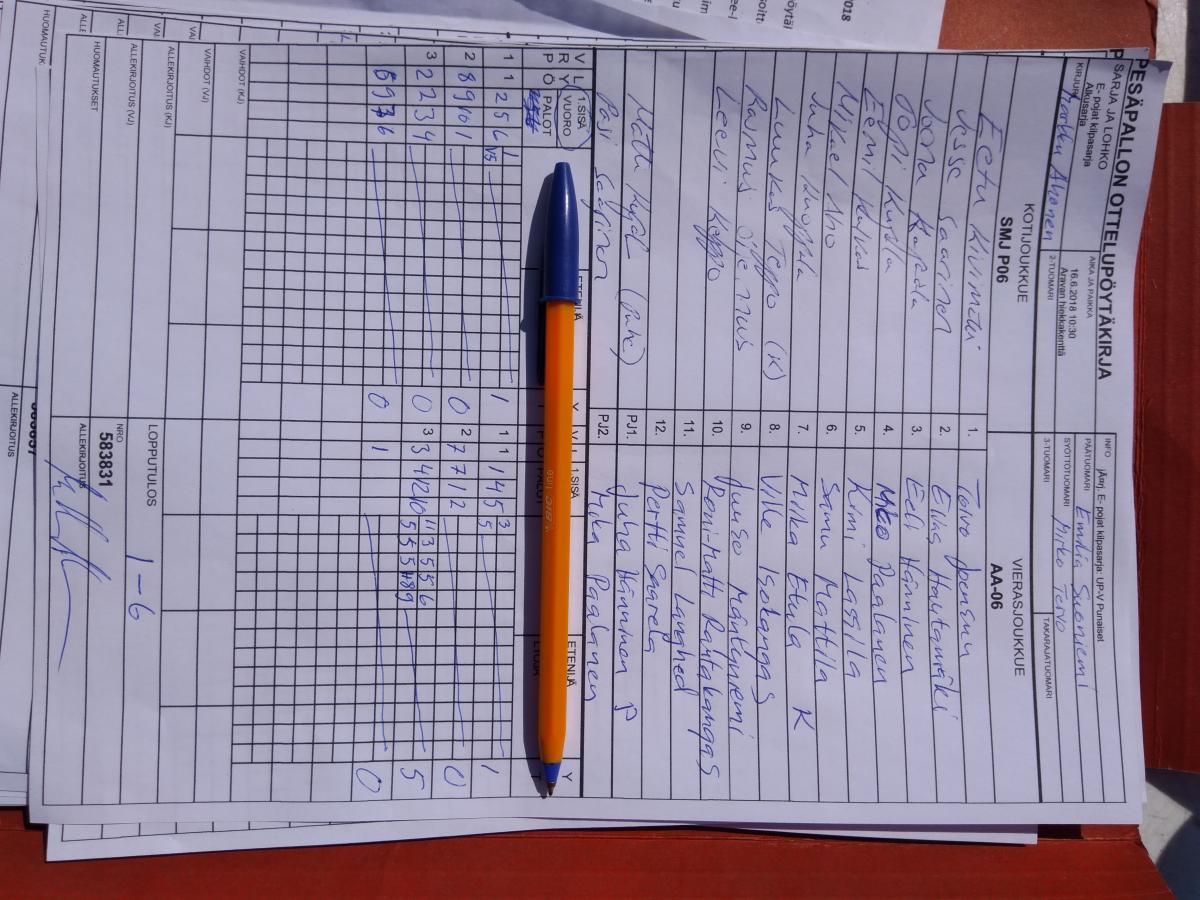 PESÄPALLON OTTELUPÖYTÄKIRJA
SARJA JA LOHKO
E- pojat kilpasarja
Alkusarja
AIKA JA PAIKKA
16.6.2018 10:30
Aravan hiekkakenttä
INFO
jÄorj. E- pojat kilpasarja: UP-V Punaiset
PÄÄTUOMARI Emilia Suoniemi
KIRJURI Markku Ahonen
2-TUOMARI
SYÖTTÖTUOMARI Mirko Tervo
3-TUOMARI
TAKARAJATUOMARI
KOTIJOUKKUE
SMJ P06
VIERASJOUKKUE
AA-06
Eetu Kivimäki 1. Toivo Joensuu
Jesse Saarinen 2. Eino Hautamäki
Joona 3. Eeli Hänninen
Joni 4. Mico Paalanen
Eemil 5. Kimi Lassila
Mikael Aho 6. Samu Mattila
Juha Kuoppala 7. Miika Ekola K
Luukas Teppo (K) 8. Ville Isokangas
Rasmus 9. Juuso Mäntyniemi
Leevi Keppo 10. Roni-Matti Rantakangas
11. Samuel Langhed
12. Pertti Saarela
Matti (puhe) PJ1. Juha Hänninen P
Pasi Saarinen PJ2. Mika Paalanen
V L 1.SISÄ ETENIJÄ Y
R Y VUORO
P Ö PALOT
V L 1.SISÄ ETENIJÄ Y
1 1 2 5 6 1 1
1 1 1 4 5 3 1
V5
5
2 8 9 10 1 0
2 7 7 12 0
3 2 2 3 4 0
3 3 4 12 10 11 3 5 5 6 5
5 5 5 4 8 9
0
1 0
VAIHDOT (KJ)
VAIHDOT (VJ)
LOPPUTULOS 1-6
ALLEKIRJOITUS (KJ)
ALLEKIRJOITUS (VJ)
NRO
583831
HUOMAUTUKSET
ALLEKIRJOITUS
HUOMAUTUK
ALLEKIRJOITUS
2018